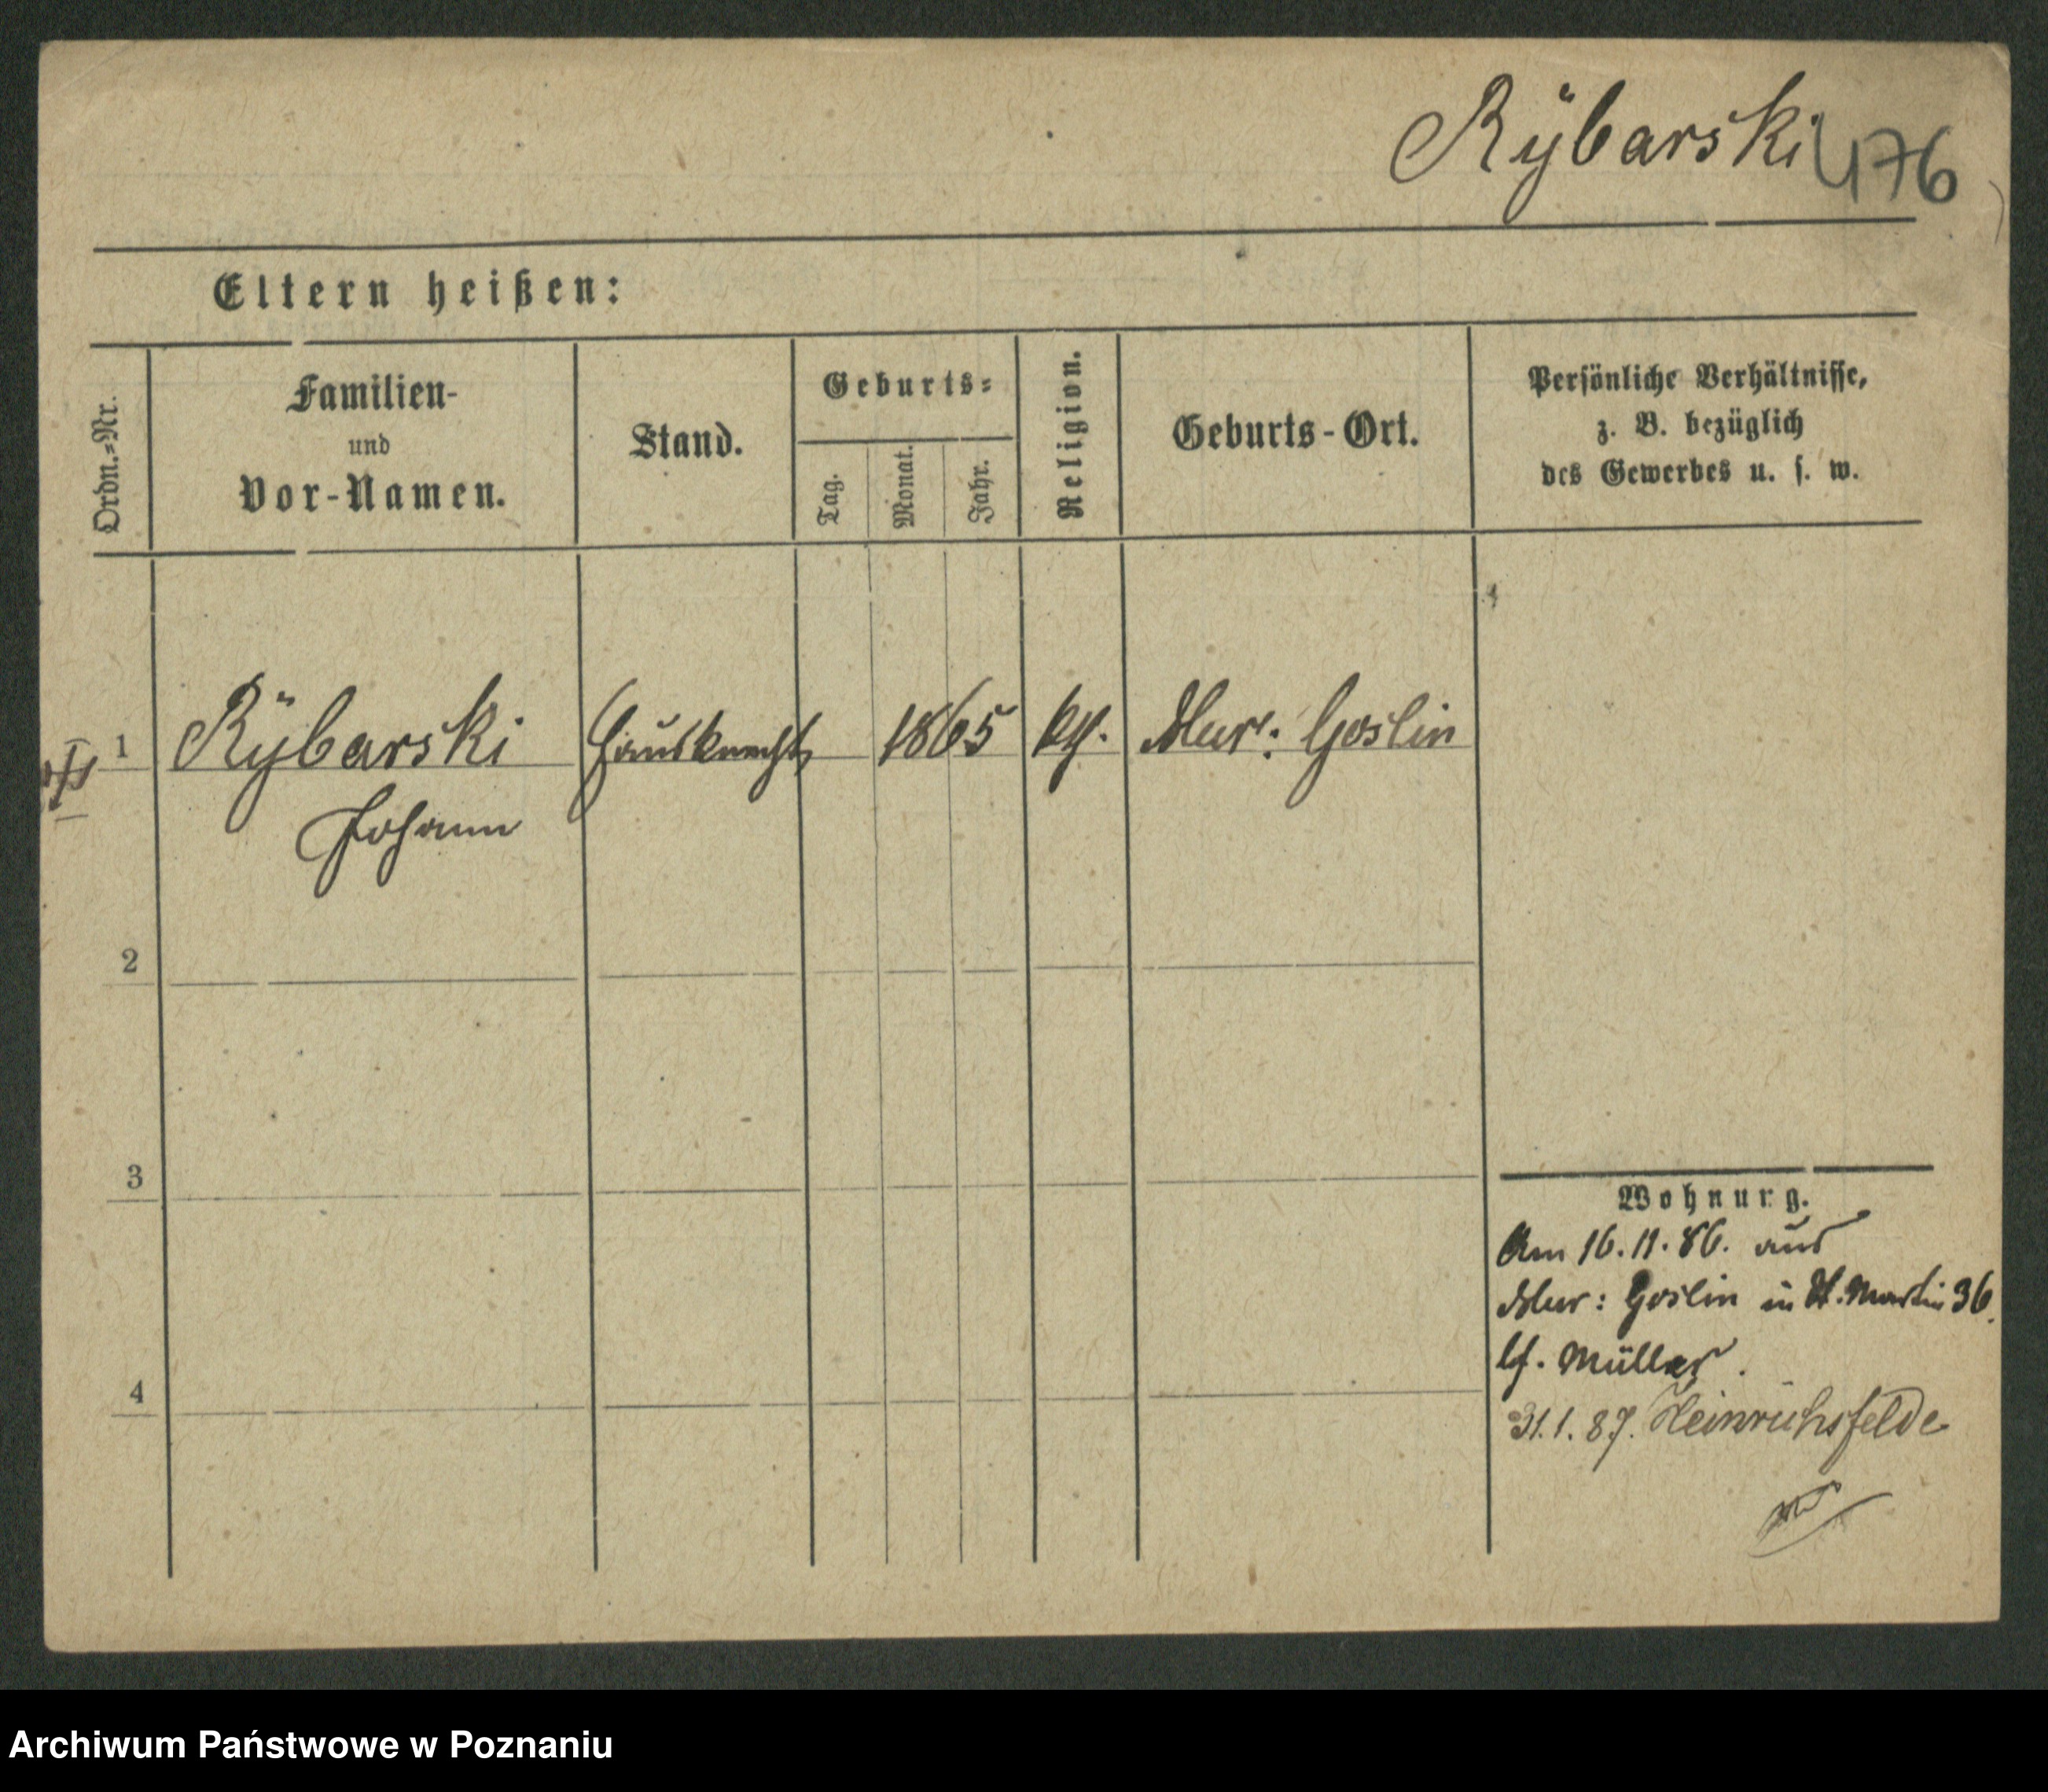 Rÿbarski 476
Eltern heißen:
Ordn.=Nr.
Familien-
und
Vor-Namen.
Stand.
Geburts=
Tag.
Monat.
Jahr.
Religion.
Geburts-Ort.
Persönliche Verhältnisse,
z. B. bezüglich
des Gewerbes u. s. w.
1 Rÿbarski Hausknecht 1865 kth. Mur: Goslin
Johann
2
3
4
Wohnung.
Am 16.11.86. aus
Mur: Goslin in St. Martin 36.
bei Müller.
31.1.87. Heinrichsfelde
Archiwum Państwowe w Poznaniu